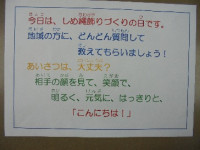 今日は、しめ縄飾りづくりの日です。
地域の方に、どんどん質問して
教えてもらいましょう!
あいさつは、大丈夫?
相手の顔を見て、笑顔で、
明るく、元気に、はっきりと、
「こんにちは!」